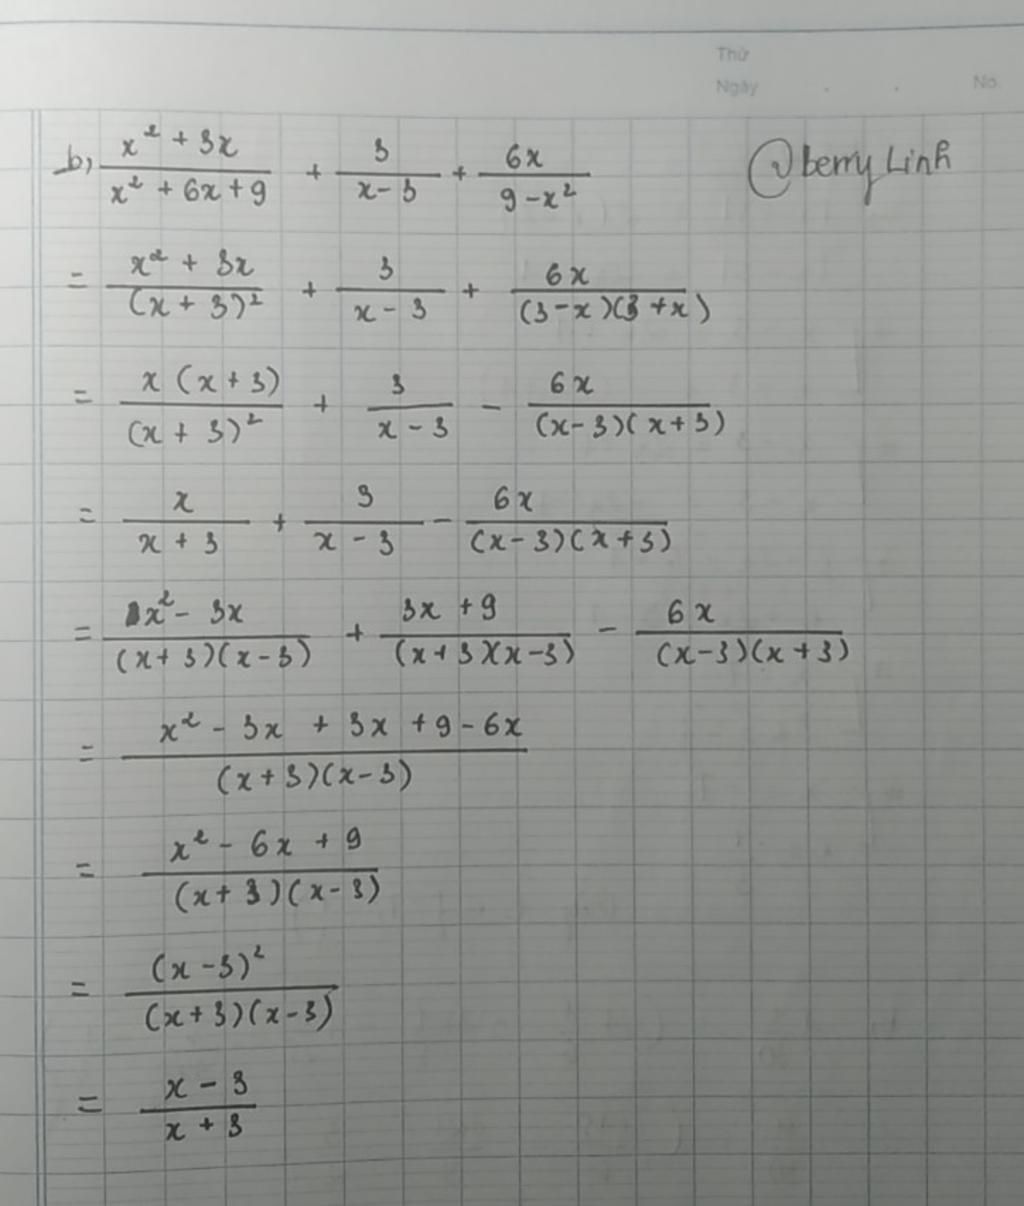 Thứ
Ngày . . No.
b, \frac{x^2 + 3x}{x^2 + 6x + 9} + \frac{3}{x - 3} + \frac{6x}{9 - x^2} @berry Linh
= \frac{x^2 + 3x}{(x + 3)^2} + \frac{3}{x - 3} + \frac{6x}{(3 - x)(3 + x)}
= \frac{x(x + 3)}{(x + 3)^2} + \frac{3}{x - 3} - \frac{6x}{(x - 3)(x + 3)}
= \frac{x}{x + 3} + \frac{3}{x - 3} - \frac{6x}{(x - 3)(x + 3)}
= \frac{x^2 - 3x}{(x + 3)(x - 3)} + \frac{3x + 9}{(x + 3)(x - 3)} - \frac{6x}{(x - 3)(x + 3)}
= \frac{x^2 - 3x + 3x + 9 - 6x}{(x + 3)(x - 3)}
= \frac{x^2 - 6x + 9}{(x + 3)(x - 3)}
= \frac{(x - 3)^2}{(x + 3)(x - 3)}
= \frac{x - 3}{x + 3}